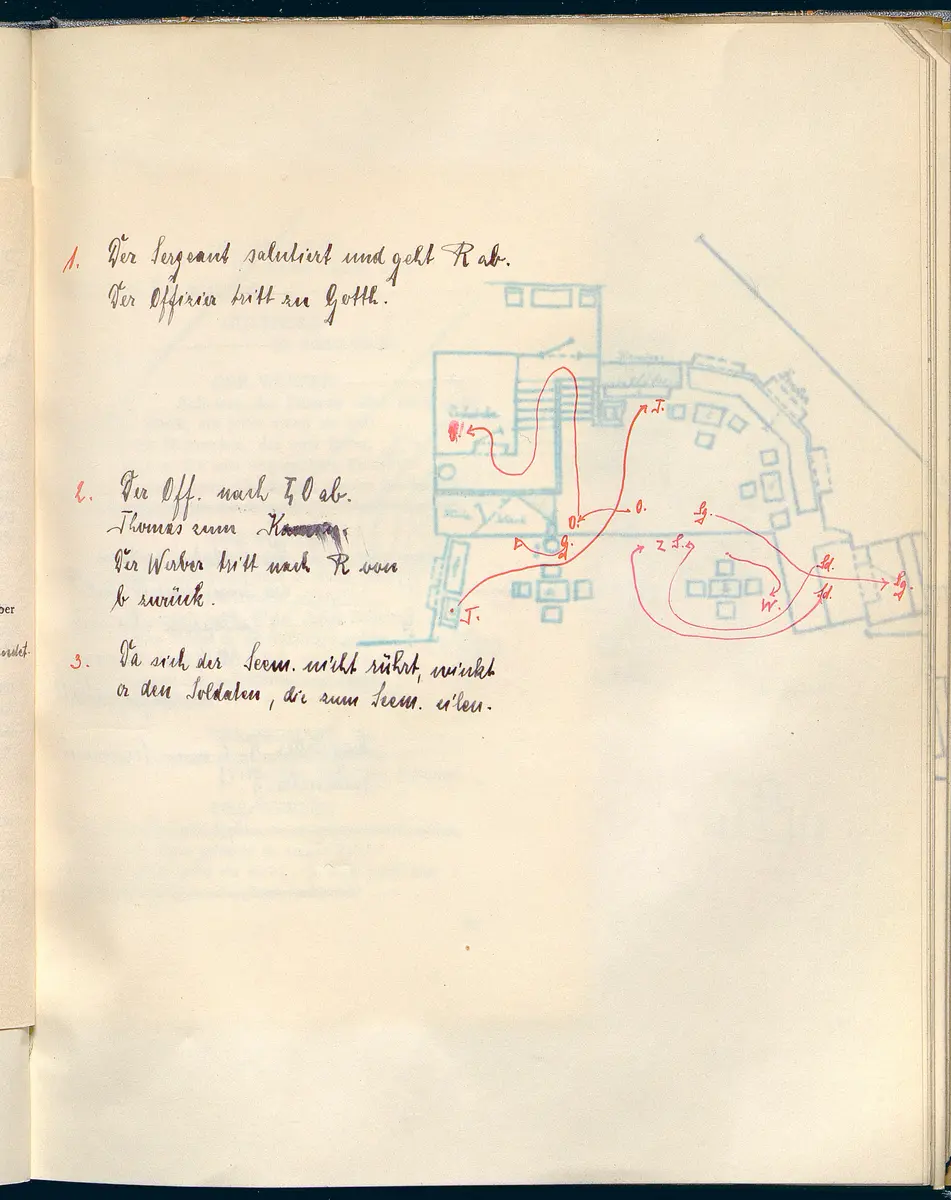 1. Der Sergeant salutiert und geht R ab.
Der Offizier tritt zu Gotth.
2. Der Off. nach I, O ab.
Thomas zum
Der Werber tritt nach R von
b zurück.
3. Da sich der Seem. nicht rührt, winkt
er den Soldaten, die zum Seem. eilen.
T.
O.
O.
Sg.
G.
2 S.
Sd.
Sd.
Sg.
W.
T.
ber